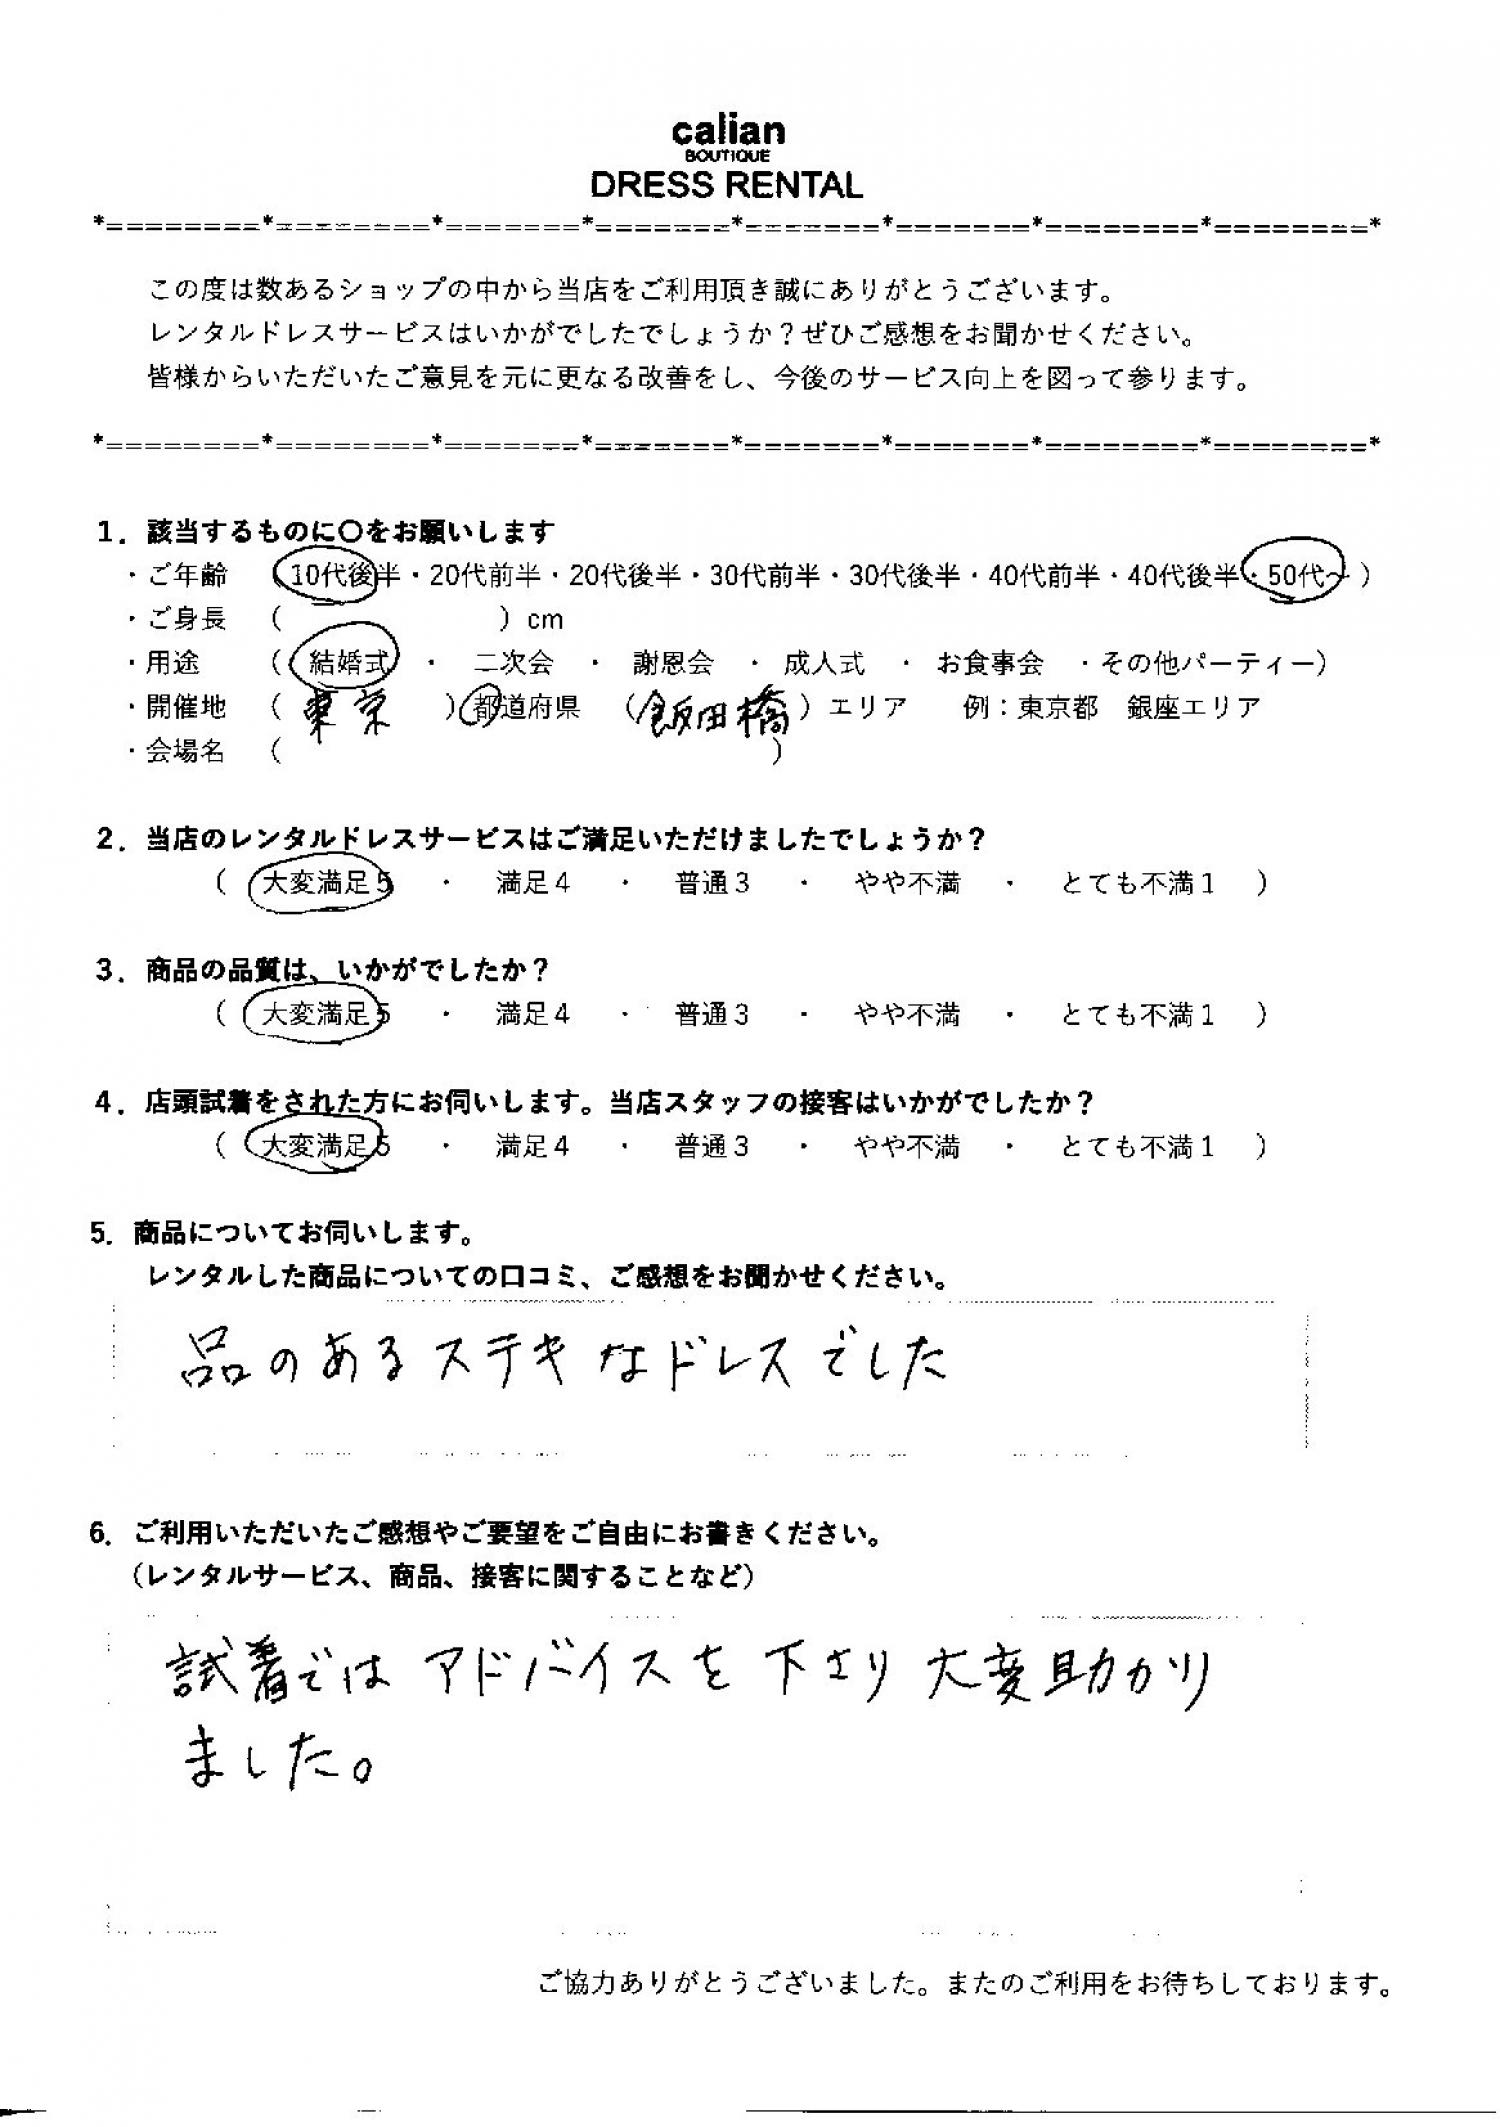 calian
BOUTIQUE
DRESS RENTAL
*========*========*=======*=======*=======*=======*========*========*
この度は数あるショップの中から当店をご利用頂き誠にありがとうございます。
レンタルドレスサービスはいかがでしたでしょうか？ぜひご感想をお聞かせください。
皆様からいただいたご意見を元に更なる改善をし、今後のサービス向上を図って参ります。
*========*========*=======*=======*=======*=======*========*========*
1．該当するものに〇をお願いします
・ご年齢 （10代後半・20代前半・20代後半・30代前半・30代後半・40代前半・40代後半・50代～）
・ご身長 （ ）cm
・用途 （ 結婚式 ・ 二次会 ・ 謝恩会 ・ 成人式 ・ お食事会 ・その他パーティー）
・開催地 （ 東京 ）都道府県 （飯田橋）エリア 例：東京都 銀座エリア
・会場名 （ ）
2．当店のレンタルドレスサービスはご満足いただけましたでしょうか？
（ 大変満足５ ・ 満足４ ・ 普通３ ・ やや不満 ・ とても不満１ ）
3．商品の品質は、いかがでしたか？
（ 大変満足５ ・ 満足４ ・ 普通３ ・ やや不満 ・ とても不満１ ）
4．店頭試着をされた方にお伺いします。当店スタッフの接客はいかがでしたか？
（ 大変満足５ ・ 満足４ ・ 普通３ ・ やや不満 ・ とても不満１ ）
5．商品についてお伺いします。
レンタルした商品についての口コミ、ご感想をお聞かせください。
品のあるステキなドレスでした
6．ご利用いただいたご感想やご要望をご自由にお書きください。
（レンタルサービス、商品、接客に関することなど）
試着ではアドバイスを下さり大変助かり
ました。
ご協力ありがとうございました。またのご利用をお待ちしております。